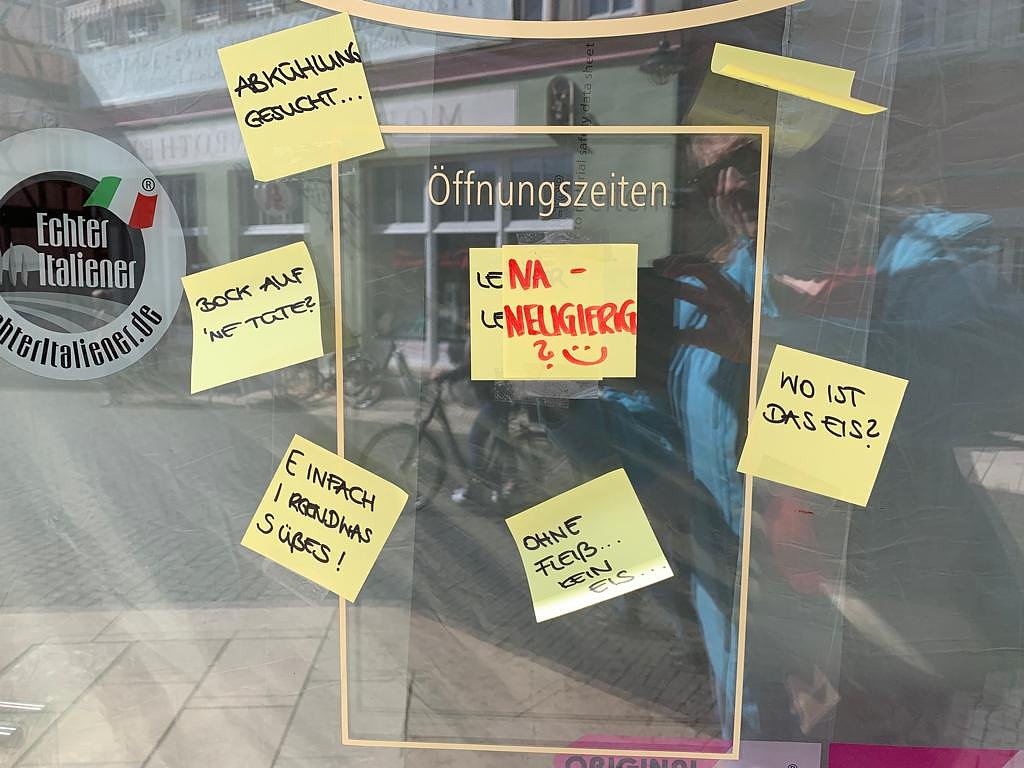 ABKÜHLUNG
GESUCHT...
Öffnungszeiten
Echter
Italiener
®
chterItaliener.de
BOCK AUF
'NE TÜTE?
LE NA -
LE NEUGIERIG
?
WO IST
DAS EIS?
EINFACH
IRGENDWAS
SÜßES!
OHNE
FLEIß...
KEIN
EIS...
material safety data sheet
ORIGINAL